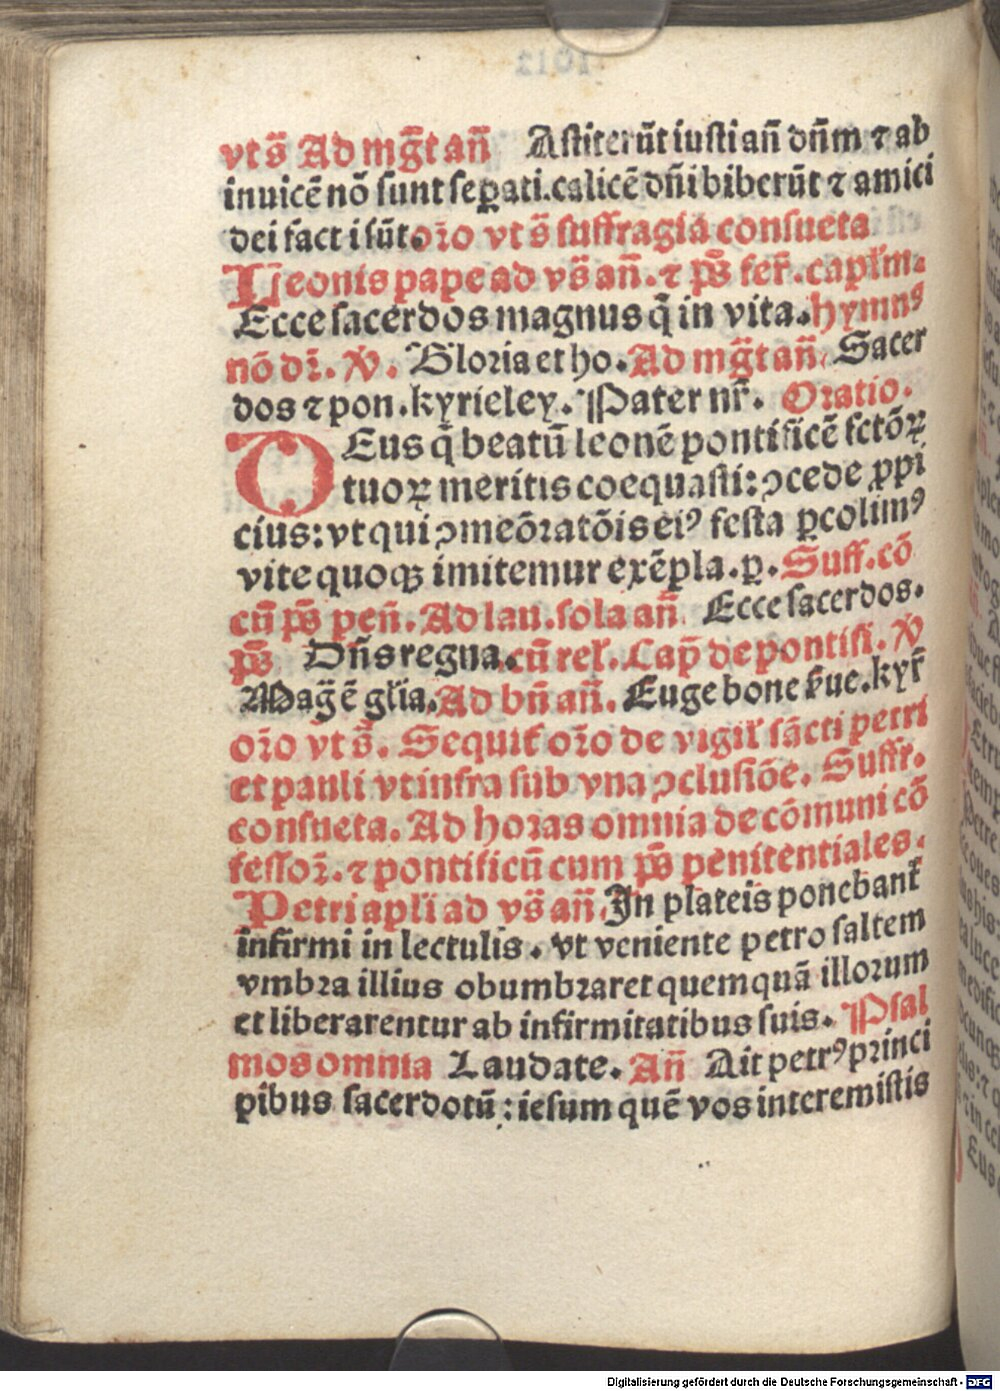 vts̄ Ad mḡt an̄ Astiterūt iusti an̄ dn̄m ⁊ ab
inuicē nō sunt seꝑati.calicē dn̄i biberūt ⁊ amici
dei facti sūt.oꝛo vt s̄ suffragia consueta
Leonis pape ad vs̄ an̄. ⁊ ps̄ fer̄.capłm.
Ecce sacerdos magnus q̄ in vita.hymnꝰ
nō dꝛ̄. V̄. Gloria et ho.Ad mḡt an̄. Sacer
dos ⁊ pon.kyrieley. Pater nr̄. Oꝛatio.
DEus q̄ beatū leonē pontificē sctōꝝ
tuoꝝ meritis coequasti: ꝯcede ꝓpi
cius: vt qui ꝯmeōꝛatōis eiꝰ festa ꝑcolimꝰ
vite quoqꝫ imitemur exēpla.ꝑ. Suff.cō
cū ps̄ pen̄. Ad lau.sola an̄ Ecce sacerdos.
ps̄ Dn̄s regna.cū rel̄. Cap̄ de pontifi. V̄
Maḡ ē gl̄ia.Ad bn̄ an̄. Euge bone s̄ue.kyr̄
oꝛo vt s̄. Sequit̄ oꝛo de vigil̄ sācti petri
et pauli vt infra sub vna ꝯclusiōe. Suffr̄.
consueta. Ad hoꝛas omnia de cōmuni cō
fessoꝛ̄. ⁊ pontificū cum ps̄ penitentiales.
Petri apl̄i ad vs̄ an̄. In plateis ponebant̄
infirmi in lectulis. vt veniente petro saltem
vmbꝛa illius obumbꝛaret quemquā illoꝛum
et liberarentur ab infirmitatibus suis. Psal
mos omnia Laudate. An̄ Ait petrꝰ pꝛinci
pibus sacerdotū: iesum quē vos interemistis
Digitalisierung gefördert durch die Deutsche Forschungsgemeinschaft - DFG